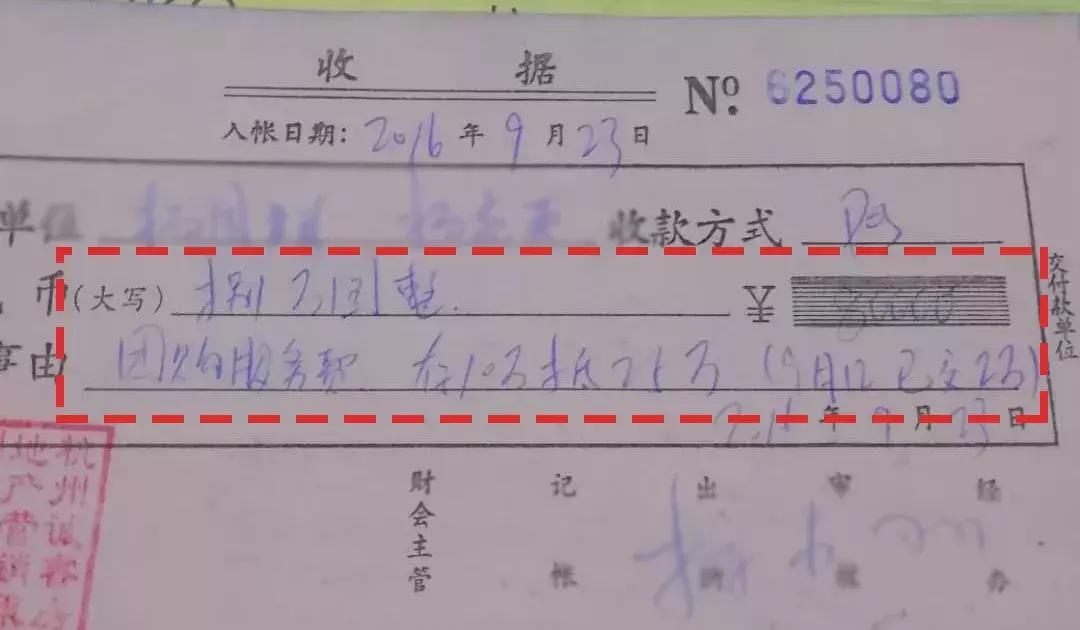 收 据
№ 6250080
入帐日期: 2016 年 9 月 23 日
单位 收款方式
币(大写) 捌万圆整 ¥ 80000
由 团购服务费 存10万抵25万 (9月12已交2万)
2016 年 9 月 23 日
交付款单位
财会主管 记帐 出纳 审核 经办
地杭
产州
营诚
销客